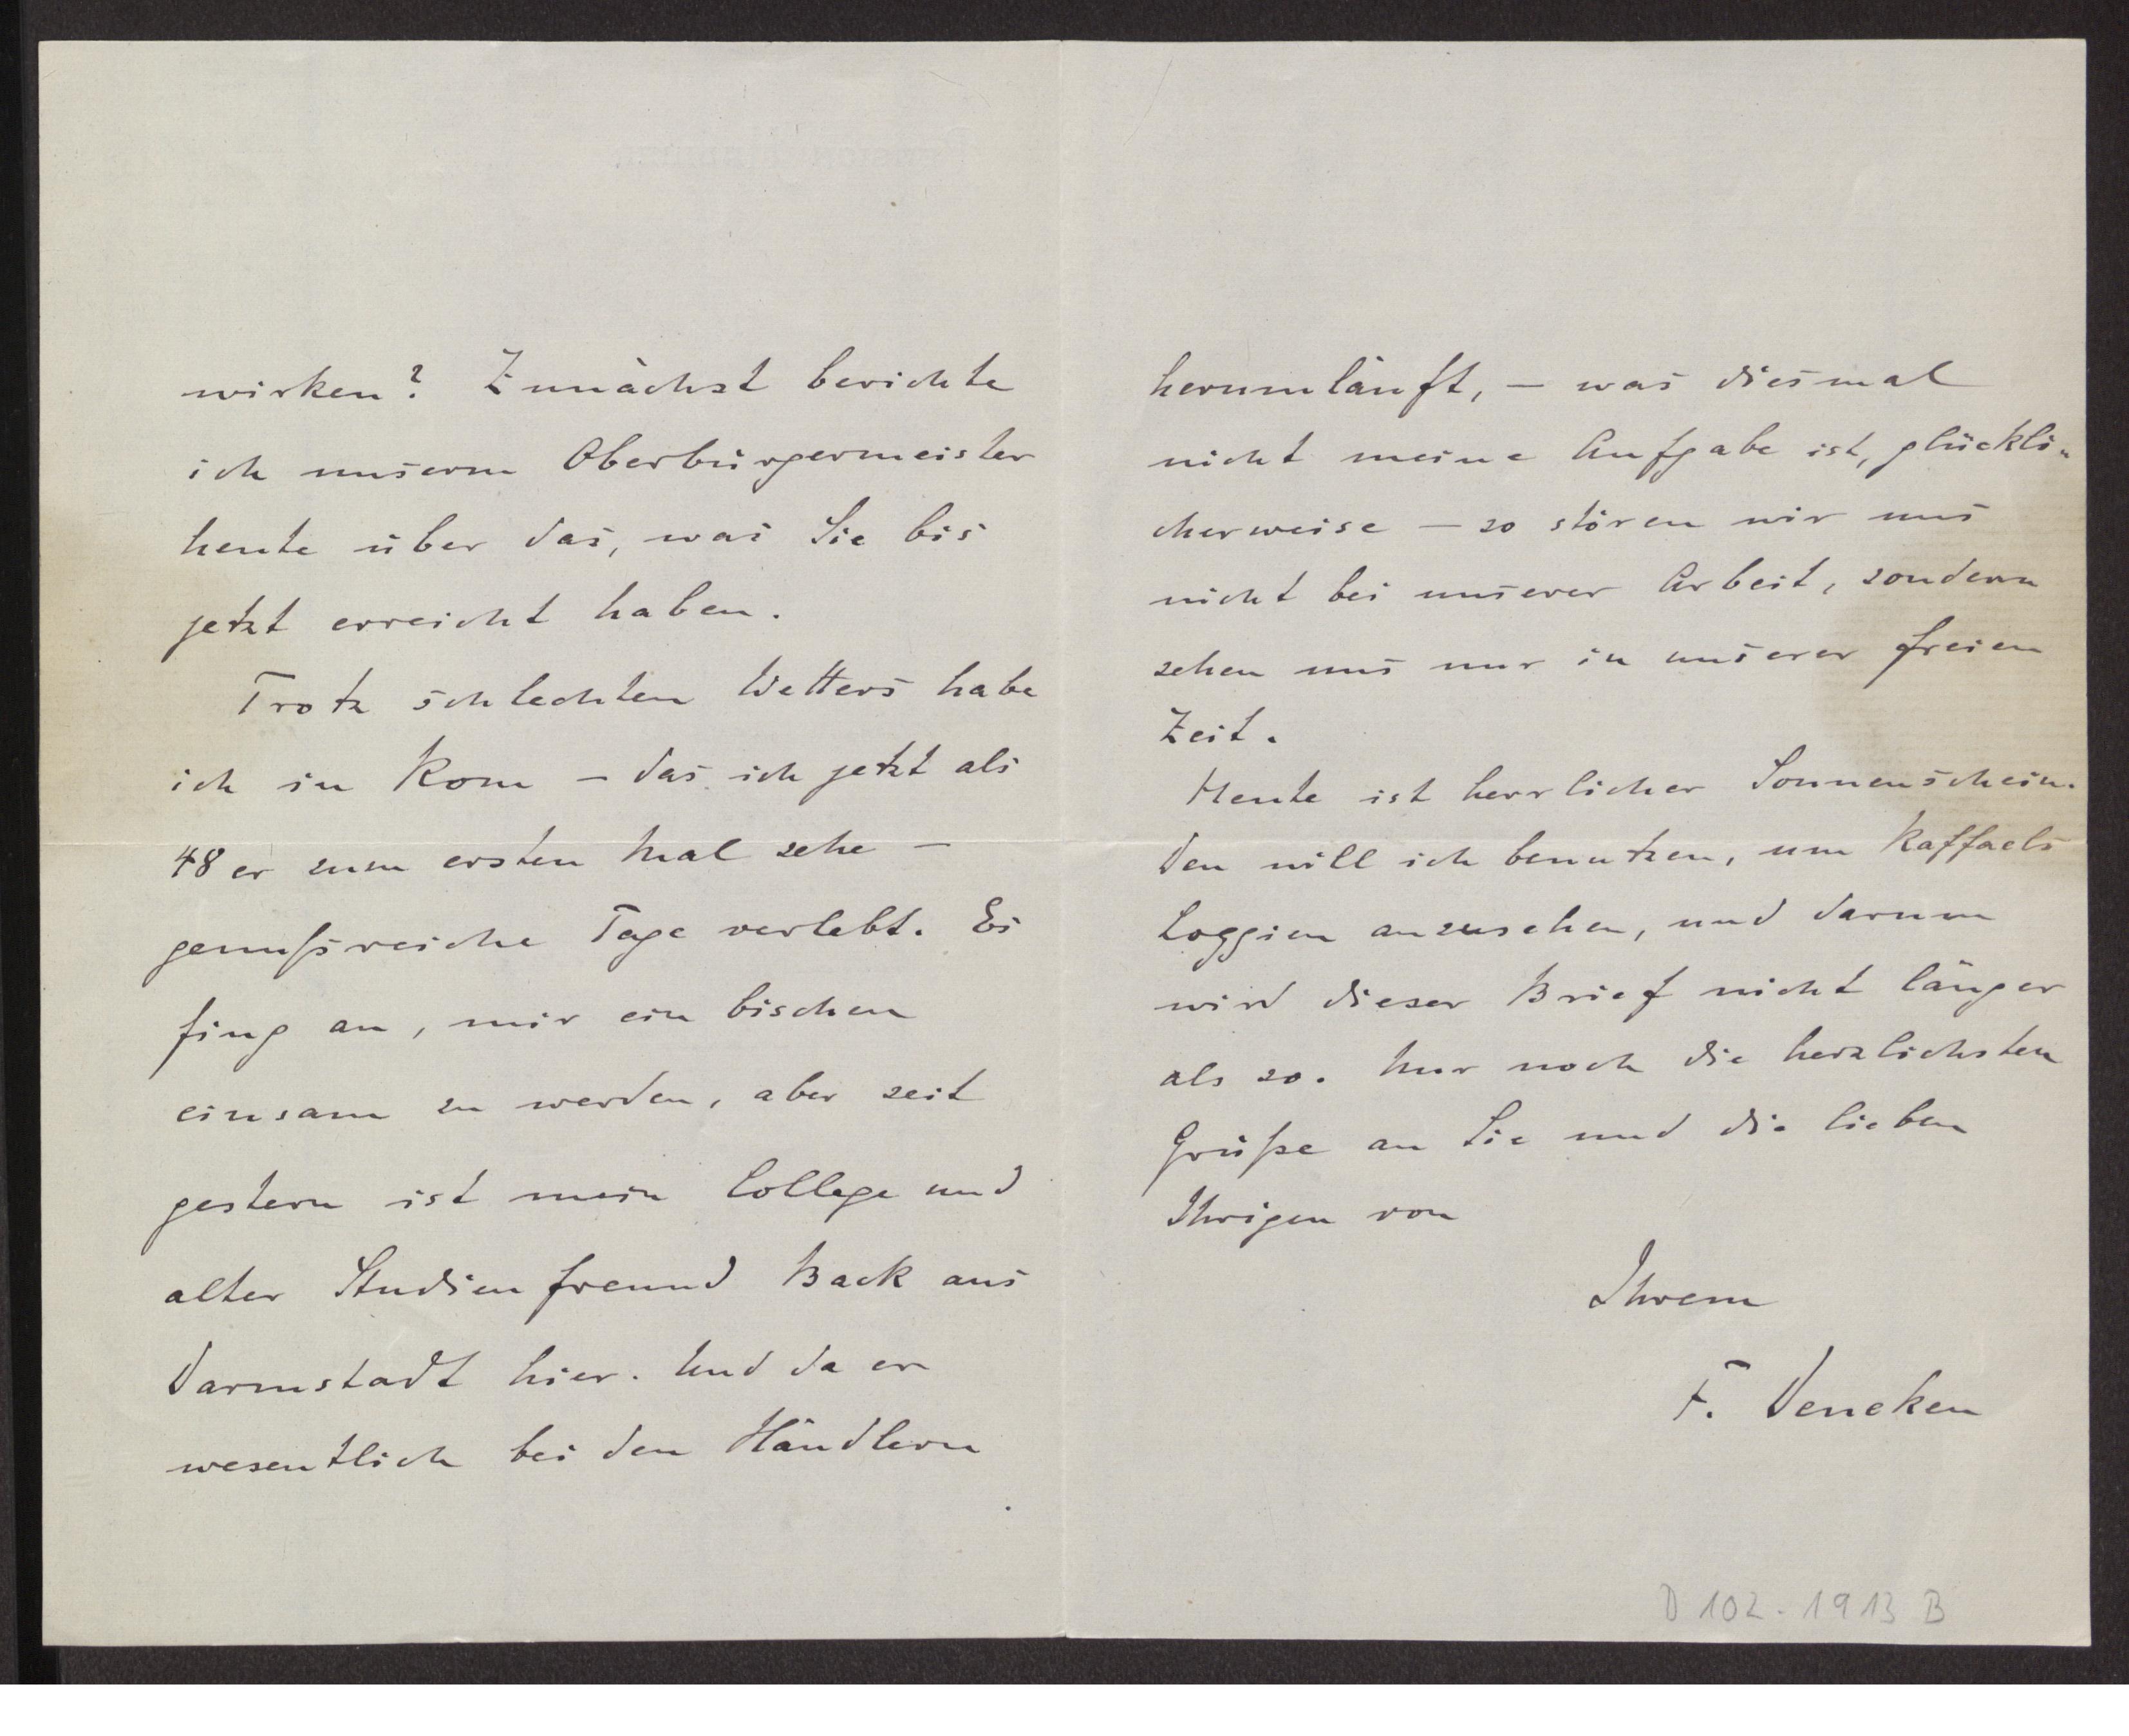 wirken? Zunächst berichte
ich unserm Oberbürgermeister
heute über das, was Sie bis
jetzt erreicht haben.
Trotz schlechten Wetters habe
ich in Rom – das ich jetzt als
48er zum ersten Mal sehe –
genußreiche Tage verlebt. Es
fing an, mir ein bischen
einsam zu werden, aber seit
gestern ist mein College und
alter Studienfreund Back aus
Darmstadt hier. Und da er
wesentlich bei den Händlern
herumläuft, – was diesmal
nicht meine Aufgabe ist, glückli-
cherweise – so stören wir uns
nicht bei unserer Arbeit, sondern
sehen uns nur in unserer freien
Zeit.
Heute ist herrlicher Sonnenschein.
Den will ich benutzen, um Raffaels
Loggien anzusehen, und darum
wird dieser Brief nicht länger
als so. Nur noch die herzlichsten
Grüße an Sie und die lieben
Ihrigen von
Ihrem
F. Deneken
D 102-1913 B